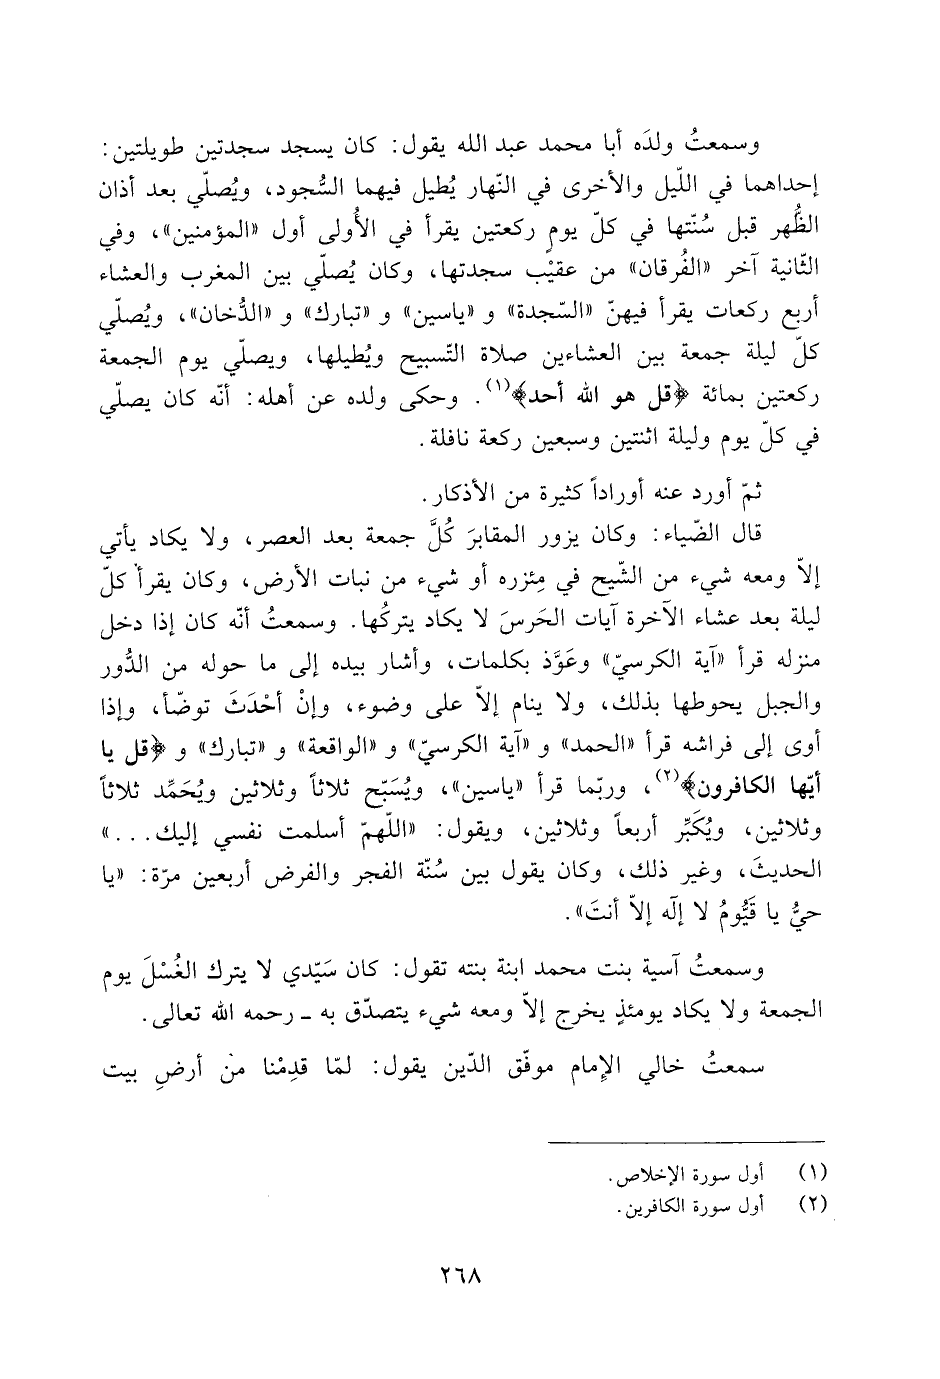 وسمعتُ ولدَه أبا محمد عبد الله يقول: كان يسجد سجدتين طويلتين:
إحداهما في اللّيل والأخرى في النّهار يُطيل فيهما السُّجود، ويُصلّي بعد أذان
الظُهر قبل سُنّتها في كلّ يومٍ ركعتين يقرأ في الأُولى أول «المؤمنين»، وفي
الثّانية آخر «الفُرقان» من عقيْب سجدتها، وكان يُصلّي بين المغرب والعشاء
أربع ركعات يقرأ فيهنّ «السّجدة» و «ياسين» و «تبارك» و «الدُّخان»، ويُصلّي
كلّ ليلة جمعة بين العشاءين صلاة التّسبيح ويُطيلها، ويصلّي يوم الجمعة
ركعتين بمائة ﴿قل هو الله أحد﴾(١). وحكى ولده عن أهله: أنّه كان يصلّي
في كلّ يوم وليلة اثنتين وسبعين ركعة نافلة.
ثمّ أورد عنه أوراداً كثيرة من الأذكار.
قال الضّياء: وكان يزور المقابرَ كُلَّ جمعة بعد العصر، ولا يكاد يأتي
إلاّ ومعه شيء من الشّيح في مِئزره أو شيء من نبات الأرض، وكان يقرأ كلّ
ليلة بعد عشاء الآخرة آيات الحَرسَ لا يكاد يتركُها. وسمعتُ أنّه كان إذا دخل
منزله قرأ «آية الكرسيّ» وعَوَّذ بكلمات، وأشار بيده إلى ما حوله من الدُّور
والجبل يحوطها بذلك، ولا ينام إلاّ على وضوء، وإنْ أحْدَثَ توضّأ، وإذا
أوى إلى فراشه قرأ «الحمد» و «آية الكرسيّ» و «الواقعة» و «تبارك» و ﴿قل يا
أيّها الكافرون﴾(٢)، وربّما قرأ «ياسين»، ويُسَبّح ثلاثاً وثلاثين ويُحَمِّد ثلاثاً
وثلاثين، ويُكَبِّر أربعاً وثلاثين، ويقول: «اللّهمّ أسلمت نفسي إليك...»
الحديثَ، وغير ذلك، وكان يقول بين سُنّة الفجر والفرض أربعين مرّة: «يا
حيُّ يا قَيُّومُ لا إلَه إلاّ أنتَ».
وسمعتُ آسية بنت محمد ابنة بنته تقول: كان سَيّدي لا يترك الغُسْلَ يوم
الجمعة ولا يكاد يومئذٍ يخرج إلاّ ومعه شيء يتصدّق به ـ رحمه الله تعالى.
سمعتُ خالي الإمام موفّق الدّين يقول: لمّا قدِمْنا منْ أرضِ بيت
(١) أول سورة الإخلاص.
(٢) أول سورة الكافرين.
٢٦٨